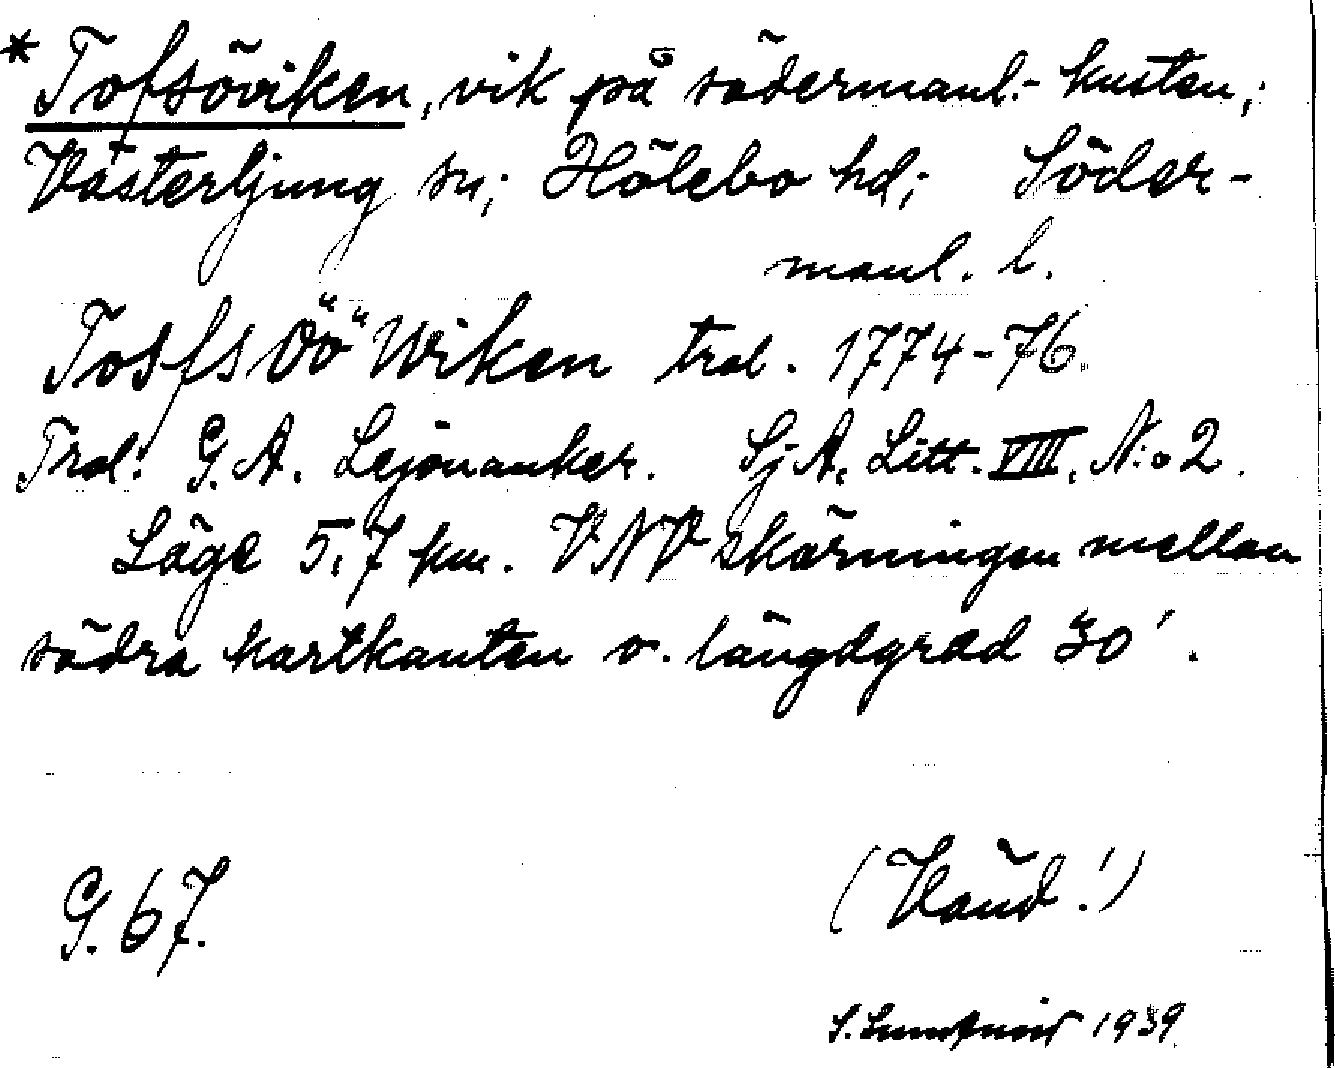 * Tofsöviken, vik på södermanl.-kusten,;
Västerljung sn; Hölebo hd; Söder-
manl. l.
Tosfs Öö Wiken trol. 1774-76.
Trol. G. A. Lejonanker. SjA. Litt. VIII. N:o 2.
Läge 5,7 km. VNV skärningen mellan
södra kartkanten o. längdgrad 30'.
G. 67.
(Vänd!)
1939